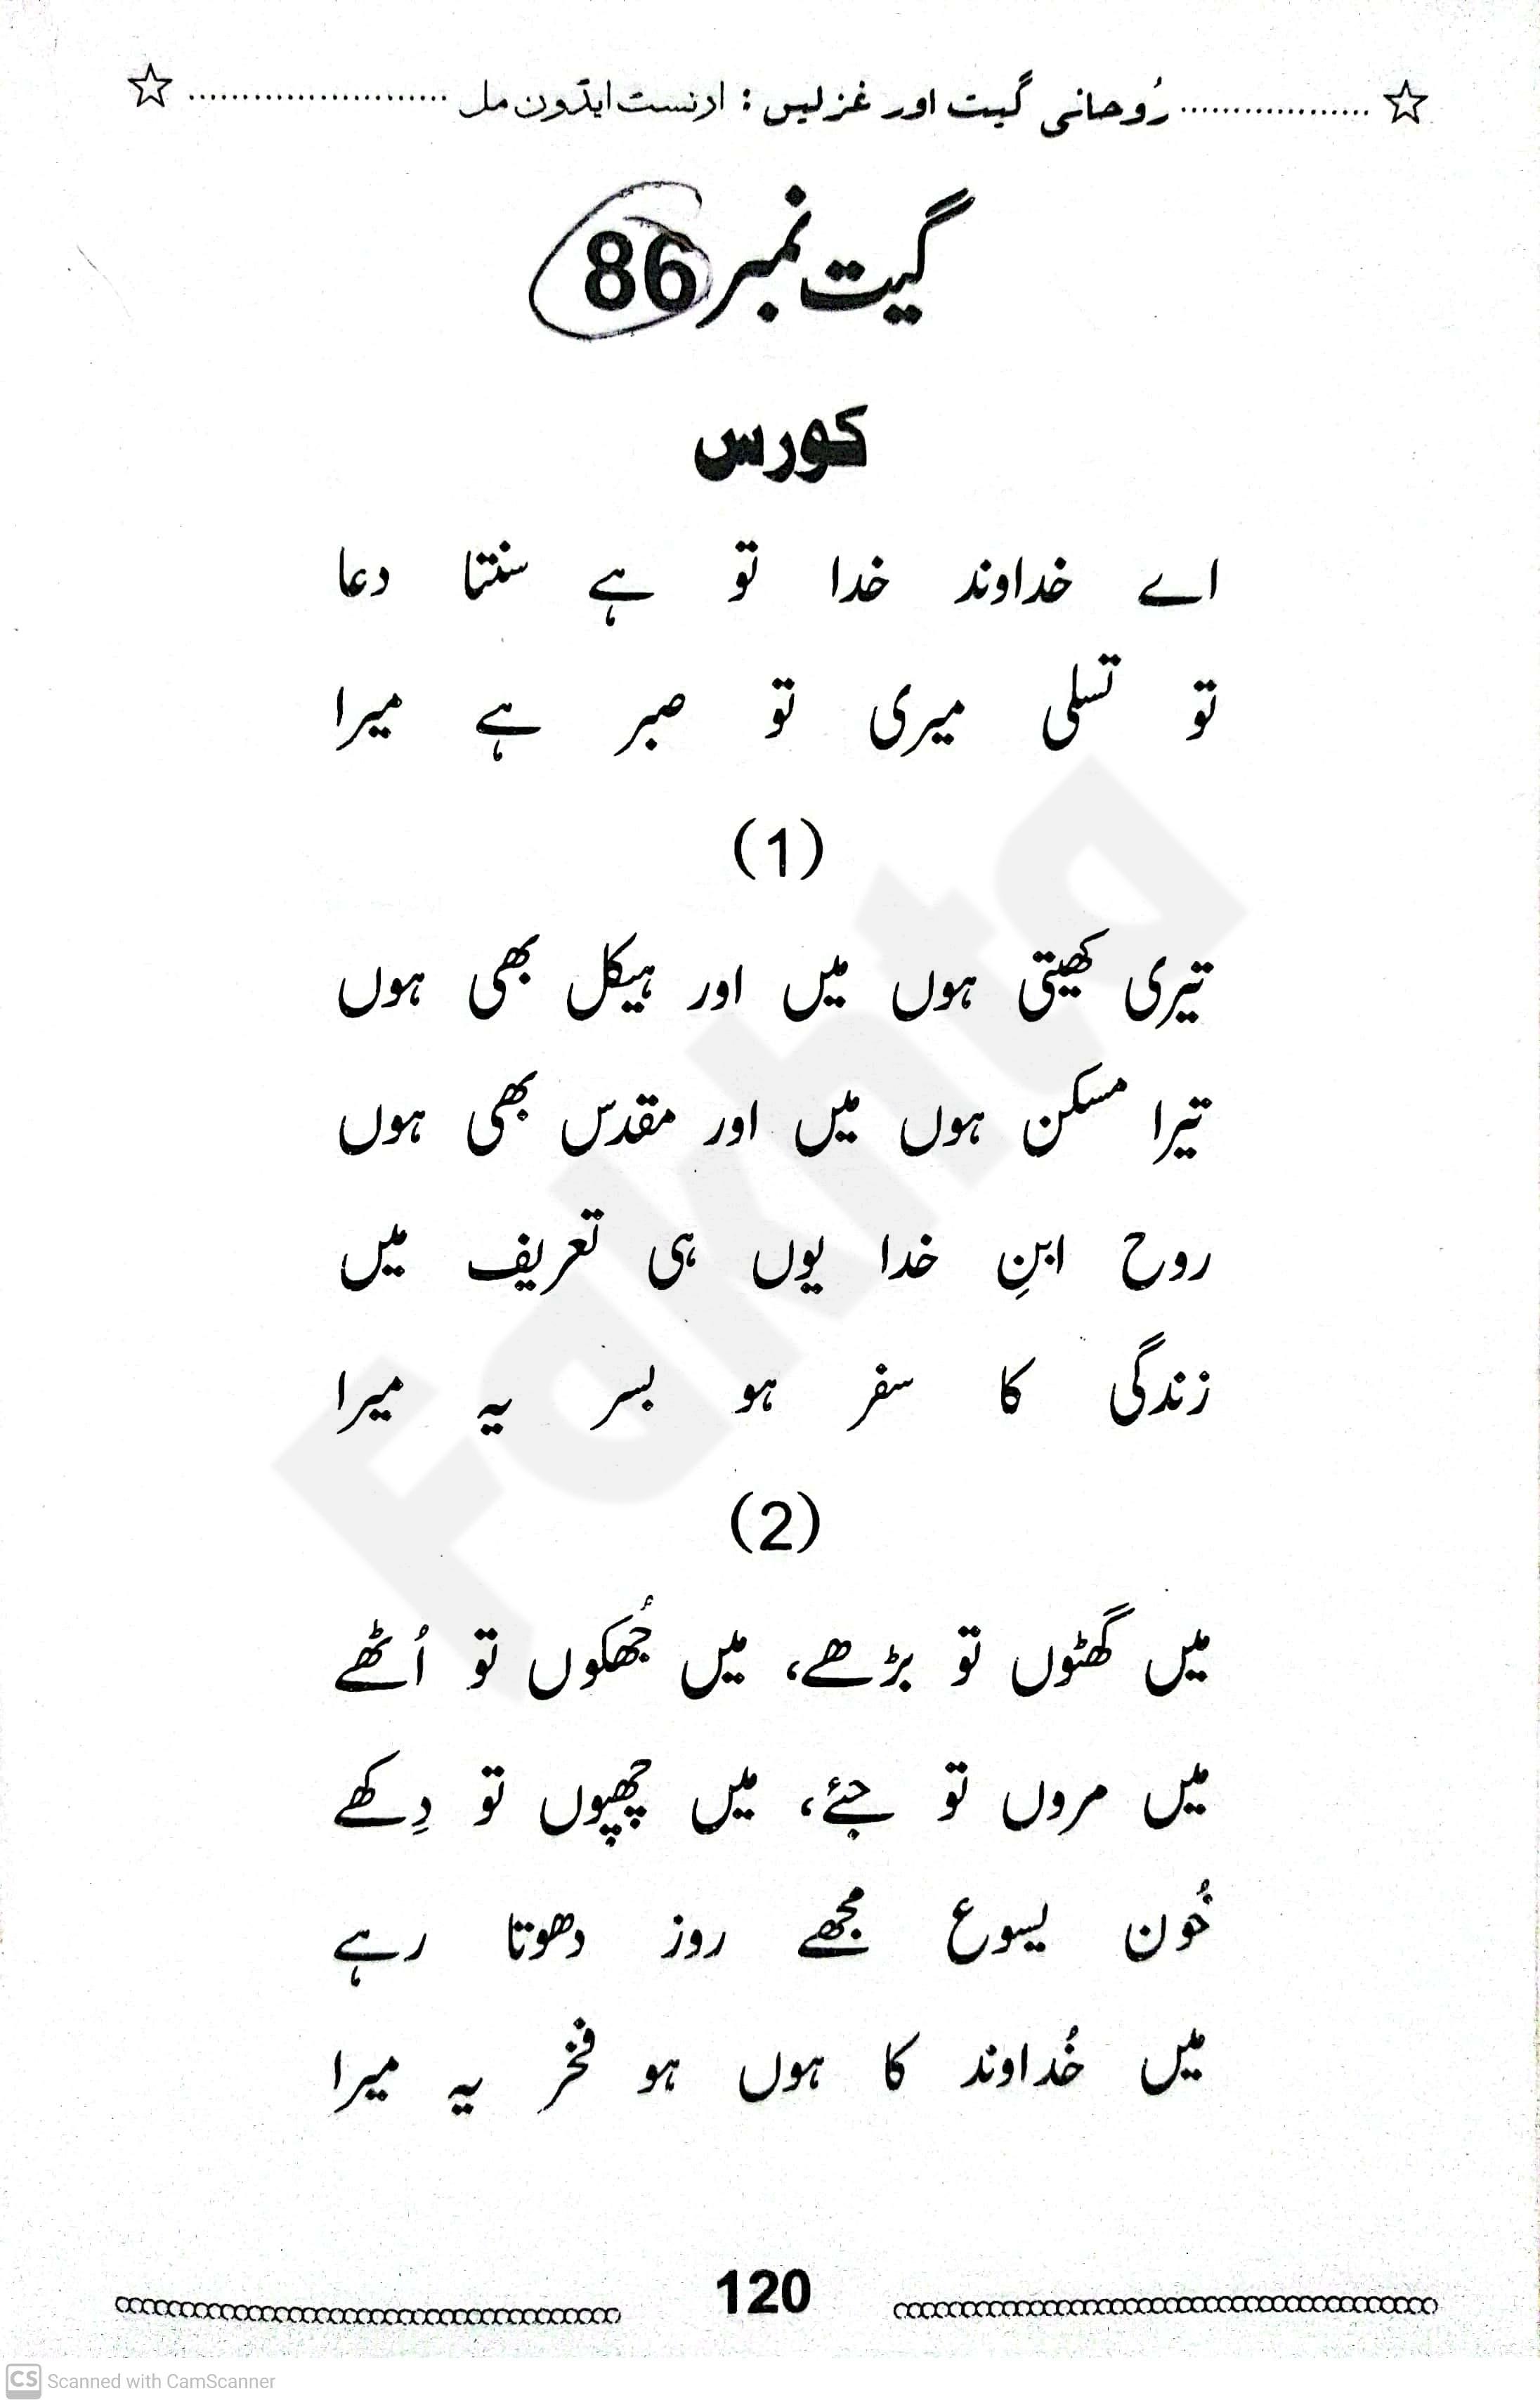 ☆ .................. رُوحانی گیت اور غزلیں : ارنسٹ ایڈون مل ........................ ☆
گیت نمبر 86
کورس
اے خداوند خدا تو ہے سنتا دعا
تو تسلی میری تو صبر ہے میرا
(1)
تیری کھیتی ہوں میں اور ہیکل بھی ہوں
تیرا مسکن ہوں میں اور مقدس بھی ہوں
روح ابنِ خدا یوں ہی تعریف میں
زندگی کا سفر ہو بسر یہ میرا
(2)
میں گھٹوں تو بڑھے، میں جُھکوں تو اُٹھے
میں مروں تو جئے، میں چھپوں تو دِکھے
خُون یسوع مجھے روز دھوتا رہے
میں خُداوند کا ہوں ہو فخر یہ میرا
Fakhta
120
CS Scanned with CamScanner